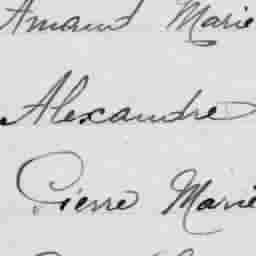 Amand Marie
Alexandre
Pierre Marie